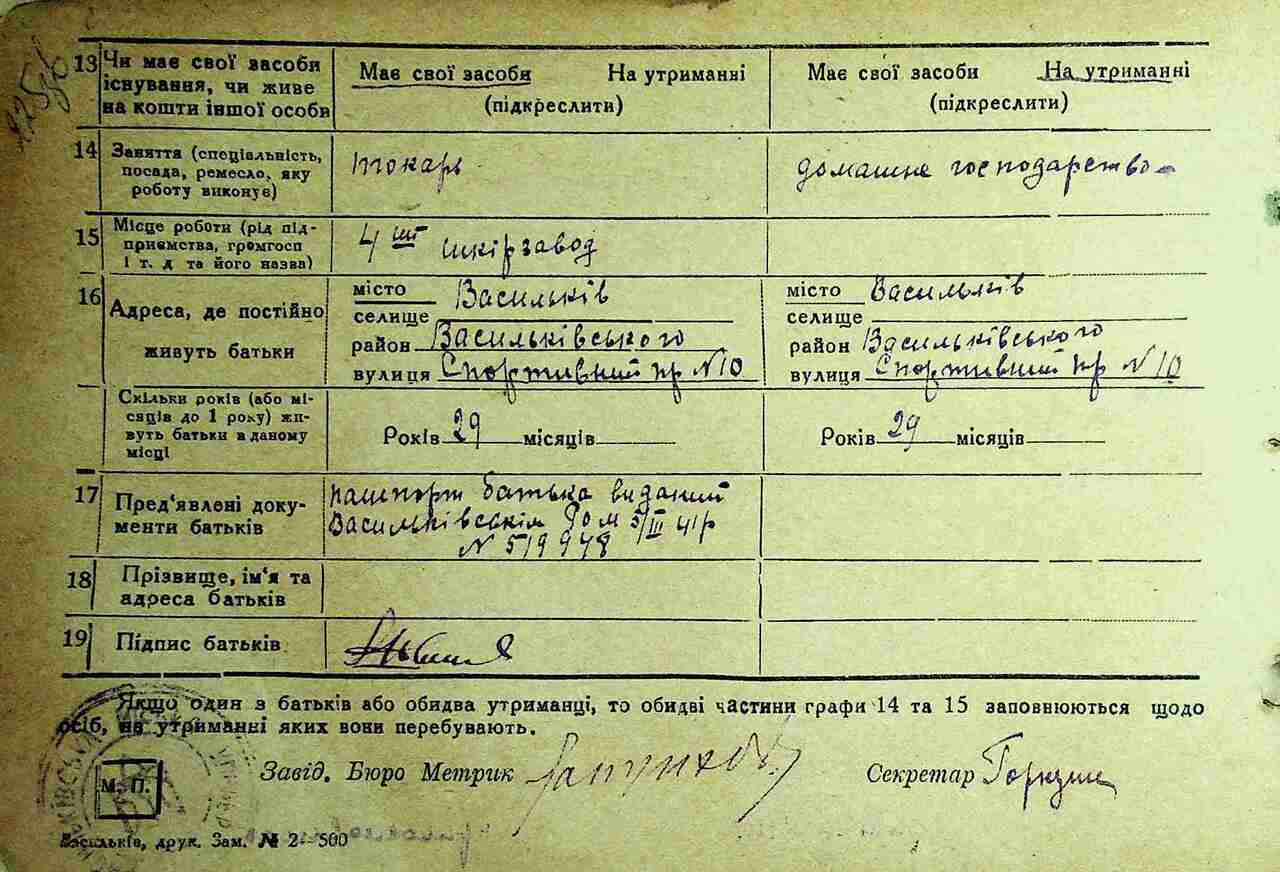 13 Чи має свої засоби
існування, чи живе
на кошти іншої особи
Має свої засоби На утриманні
(підкреслити)
Має свої засоби На утриманні
(підкреслити)
14 Заняття (спеціальність,
посада, ремесло, яку
роботу виконує)
токарь
домашнє господарство
15 Місце роботи (рід під-
приємства, громгосп
і т. д та його назва)
4 ий шкірзавод
16 Адреса, де постійно
живуть батьки
місто Васильків
селище
район Васильківського
вулиця Спортивний пр N 10
місто Васильків
селище
район Васильківського
вулиця Спортивний пр N 10
Скільки років (або мі-
сяців до 1 року) жи-
вуть батьки в даному
місці
Років 29 місяців
Років 29 місяців
17 Пред'явлені доку-
менти батьків
пашпорт батька виданий
Васильківскім 5/III 41р
N 519978
18 Прізвище, ім'я та
адреса батьків
19 Підпис батьків
Якщо один з батьків або обидва утриманці, то обидві частини графи 14 та 15 заповнюються щодо
осіб, на утриманні яких вони перебувають.
М. П.
Завід. Бюро Метрик
Секретар
Васильків, друк. Зам. № 2—500